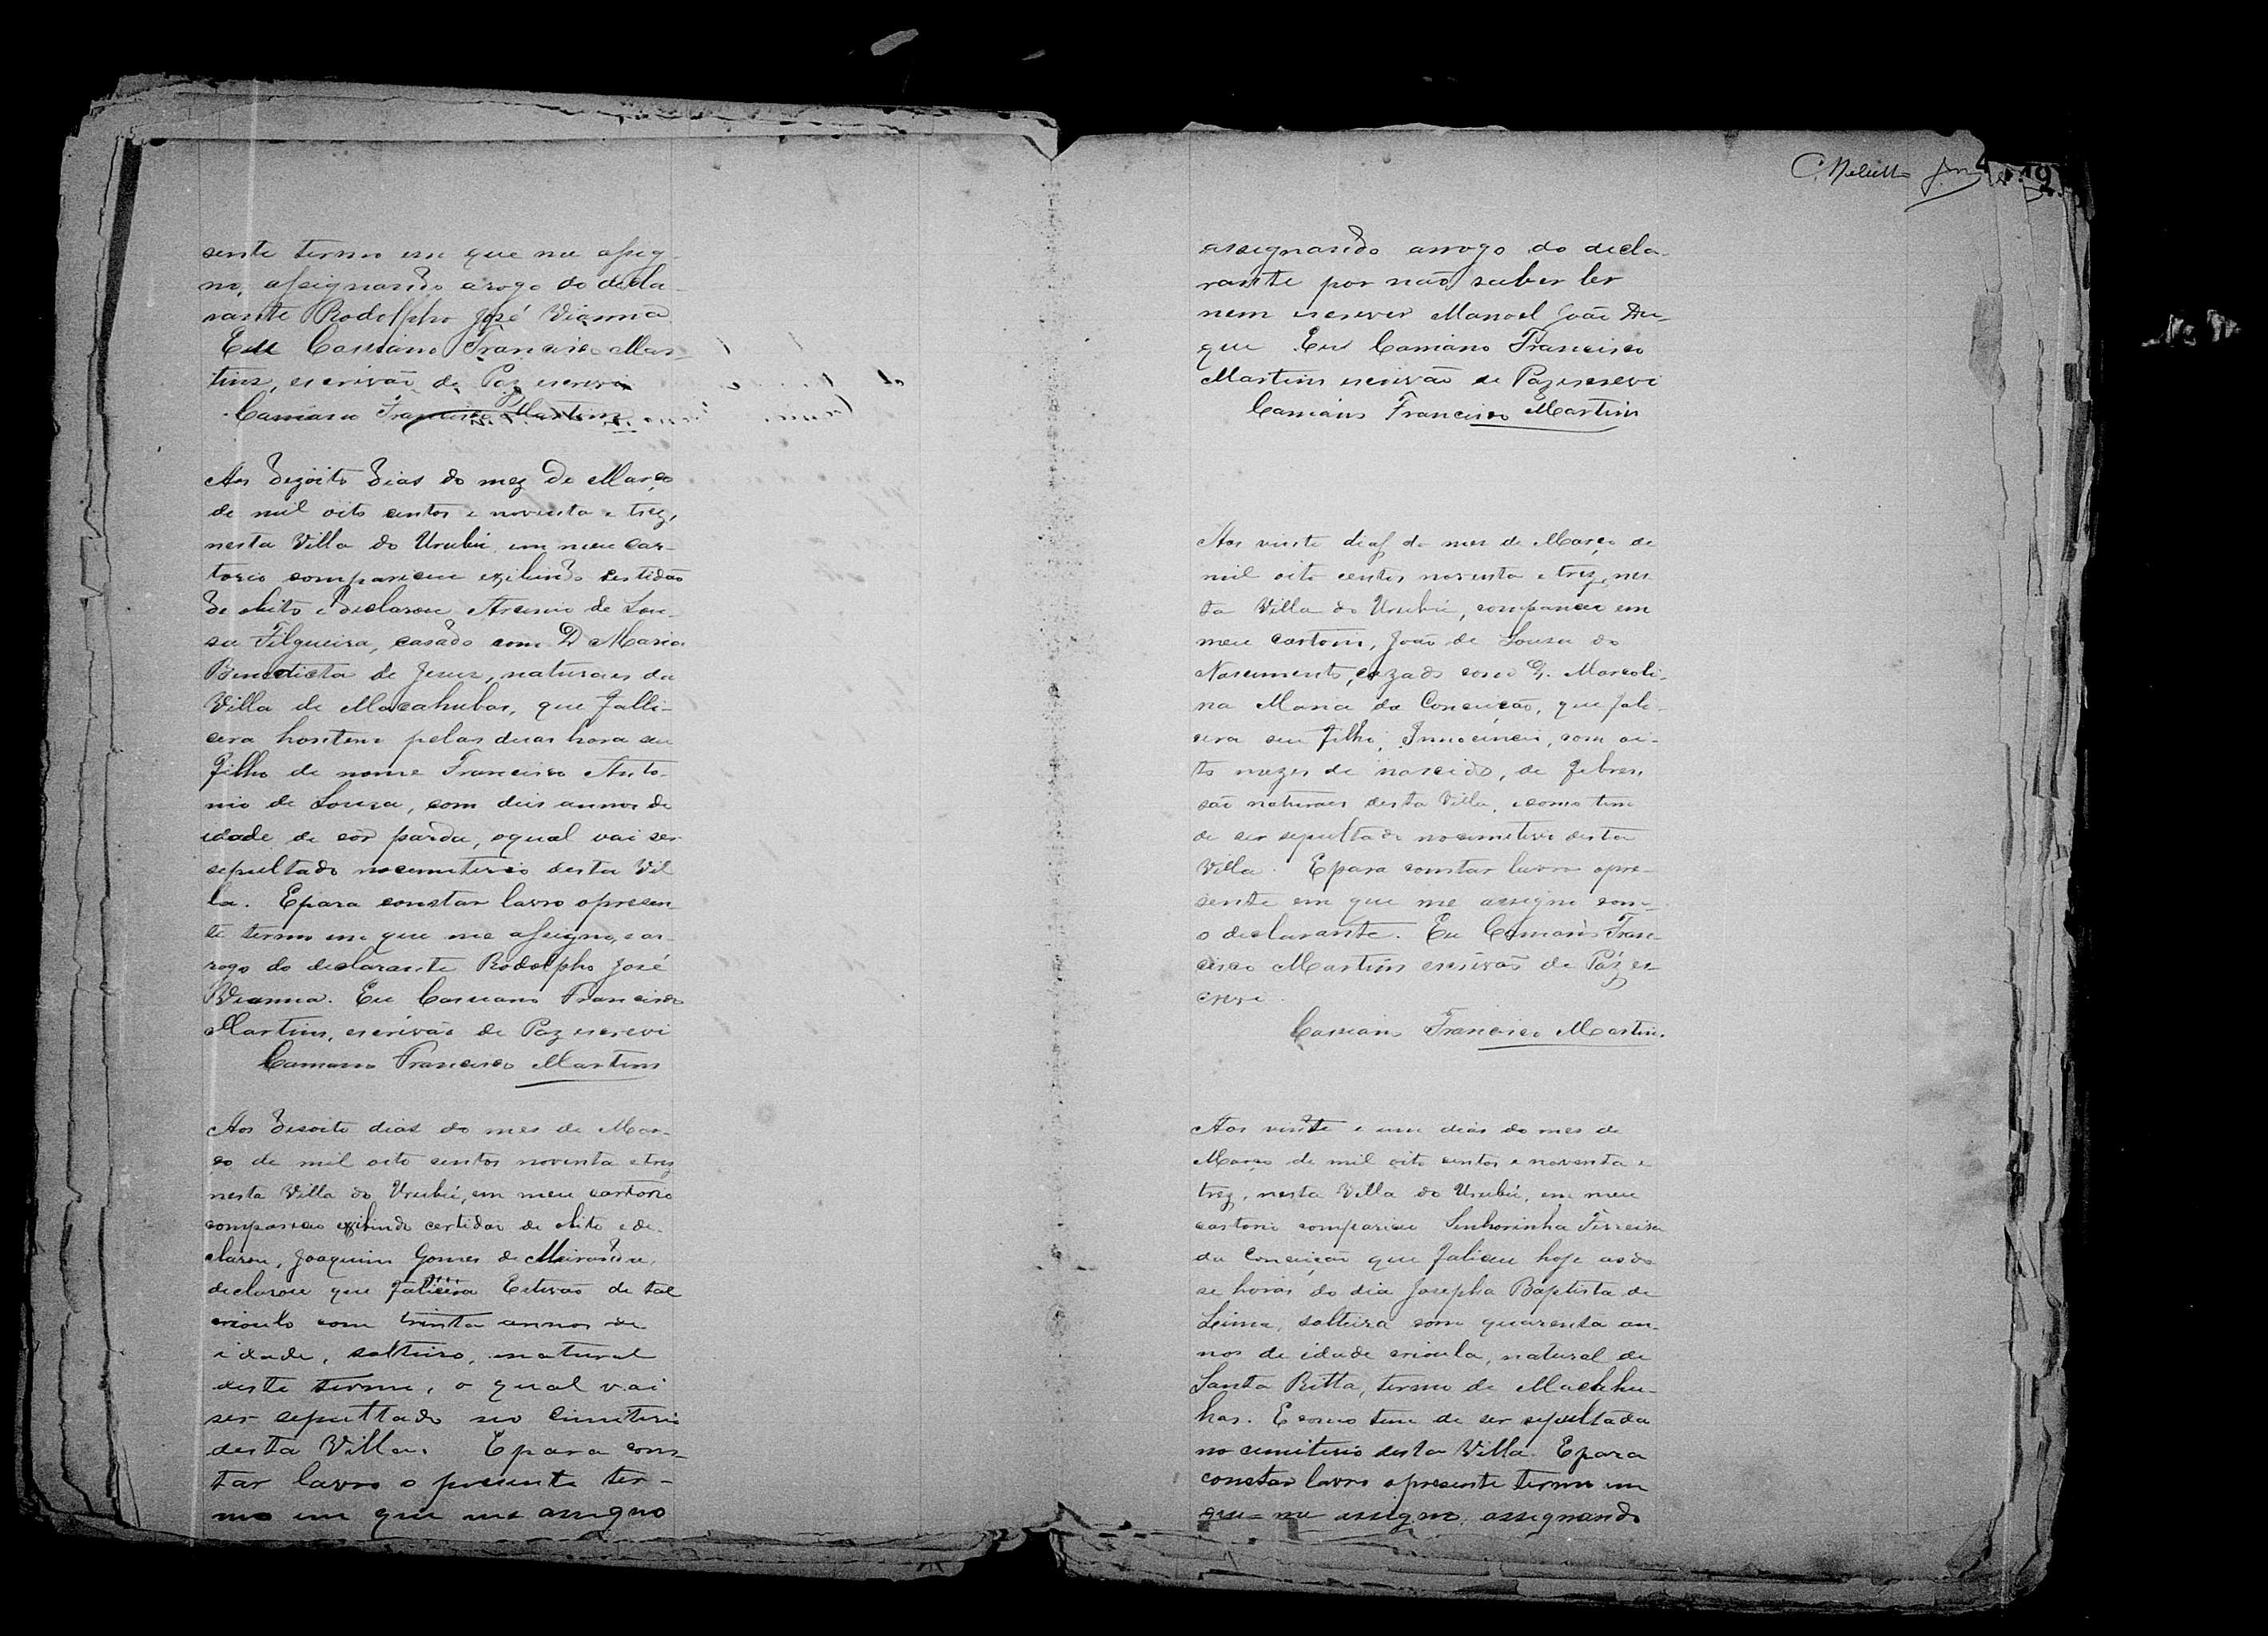 sente termo em que me assig-
no, assignando arogo do decla-
rante Rodolpho José Vianna
Eu Cassiano Francisco Mar-
tins, escrivão de Paz escrevi
Cassiano Francisco Martins
Aos dezoito dias do mez de Março
de mil oito centos e noventa e trez,
nesta Villa do Urubú em meu car-
torio compareceu exibindo certidão
de obito e declarou Arsenio de Sou-
sa Filgueira, casado com D Maria
Benedicta de Jesus, naturaes da
Villa de Macahubas, que falle-
cera hontem pelas duas hora seu
filho de nome Francisco Anto-
nio de Souza, com dois annos de
idade de côr parda, oqual vai ser
sepultado nocemiterio desta Vil
la. Epara constar lavro opresen-
te termo em que me assigno, e ar-
rogo do declarante Rodolpho José
Vianna. Eu Cassiano Francisco
Martins, escrivão de Paz escrevi
Cassiano Francisco Martins
Aos desoito dias do mes de Mar-
ço de mil oito centos noventa e trez
nesta Villa do Urubú, em meu cartorio
compareceu exibindo certidão de obito e de-
clarou, Joaquim Gomes de Miranda,
declarou que falicera Estevão de tal
crioulo com trinta annos de
idade, solteiro, natural
deste termo, o qual vai
ser sepultado no cimiterio
desta Villa. Epara cons-
tar lavro o presente ter-
mo em que me assigno
C. Netto
assignando arrogo do decla-
rante por não saber ler
nem escrever Manoel João Du-
que Eu Cassiano Francisco
Martins escrivão de Paz escrevi
Cassiano Francisco Martins
Aos vinte dias do mes de Março de
mil oito centos noventa e trez, nes-
ta Villa do Urubú, compareceu em
meu cartorio, João de Sousa do
Nascimento, cazado com D. Marcoli-
na Maria da Conceição, que fale-
cera seu filho, Innocencio, com oi-
to mezes de nascido, de febres,
são naturaes desta Villa, e como tem
de ser sepultado nocemiterio desta
Villa. Epara constar lavro opre-
sente em que me assigno com
o declarante. Eu Cassiano Fran-
cisco Martins escrivão de Paz es-
crevi
Cassiano Francisco Martins.
Aos vinte e um dias do mes de
Março de mil oito centos e noventa e
trez, nesta Villa do Urubú, em meu
cartorio compareceu Senhorinha Ferreira
da Conceição que faliceu hoje as do-
se horas do dia Josepha Baptista de
Leima, solteira com quarenta an-
nos de idade crioula, natural de
Santa Ritta, termo de Macahu-
bas. E como tem de ser sepultada
no cimiterio desta Villa. Epara
constar lavro opresente termo em
que me assigno, assignando